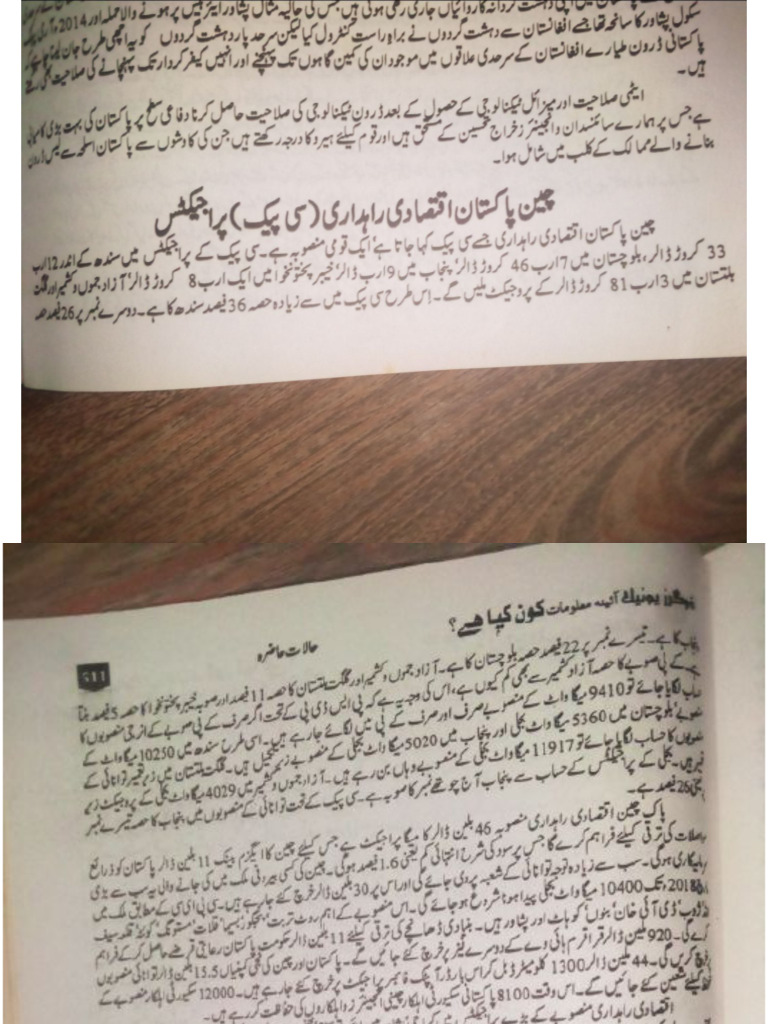 سکول پشاور کا سانحہ تھا جسے افغانستان سے دہشت گردوں نے براہِ راست کنٹرول کیا لیکن سرحد پار دہشت گردوں کو یہ اچھی طرح جان لینا چاہئے کہ
پاکستانی ڈرون طیارے افغانستان کے سرحدی علاقوں میں موجود ان کی کمین گاہوں تک پہنچنے اور انہیں کیفر کردار تک پہنچانے کی صلاحیت بھی رکھتے
ہیں۔
ایٹمی صلاحیت اور میزائل ٹیکنالوجی کے حصول کے بعد ڈرون ٹیکنالوجی کی صلاحیت حاصل کرنا دفاعی سطح پر پاکستان کی بہت بڑی کامیابی
ہے جس پر ہمارے سائنسدان و انجینئرز خراج تحسین کے مستحق ہیں اور قوم کیلئے ہیرو کا درجہ رکھتے ہیں جن کی کاوشوں سے پاکستان اسلحہ سے لیس ڈرون
بنانے والے ممالک کے کلب میں شامل ہوا۔
چین پاکستان اقتصادی راہداری (سی پیک) پراجیکٹس
چین پاکستان اقتصادی راہداری جسے سی پیک کہا جاتا ہے ایک قومی منصوبہ ہے۔ سی پیک کے پراجیکٹس میں سندھ کے اندر 12 ارب
33 کروڑ ڈالر، بلوچستان میں 7 ارب 46 کروڑ ڈالر، پنجاب میں 9 ارب ڈالر، خیبر پختونخوا میں ایک ارب 8 کروڑ ڈالر، آزاد جموں و کشمیر اور گلگت
بلتستان میں 3 ارب 81 کروڑ ڈالر کے پروجیکٹ ملیں گے۔ اس طرح سی پیک میں سے زیادہ حصہ 36 فیصد سندھ کا ہے۔ دوسرے نمبر پر 26 فیصد حصہ
یونیک آئینہ معلومات کون کیا ہے؟
حالات حاضرہ
511
پنجاب کا ہے۔ تیسرے نمبر پر 22 فیصد حصہ بلوچستان کا ہے۔ آزاد جموں و کشمیر اور گلگت بلتستان کا حصہ 11 فیصد اور صوبہ خیبر پختونخوا کا حصہ 5 فیصد بنتا
ہے کے پی صوبے کا حصہ آزاد کشمیر سے بھی کم کیوں ہے، اس کی وجہ یہ ہے کہ پی ایس ڈی پی کے تحت اگر صرف کے پی صوبے کے انرجی منصوبوں کا
حساب لگایا جائے تو 9410 میگا واٹ کے منصوبے صرف اور صرف کے پی میں لگائے جا رہے ہیں۔ اسی طرح سندھ میں 10250 میگا واٹ کے
منصوبے، بلوچستان میں 5360 میگا واٹ بجلی اور پنجاب میں 5020 میگا واٹ بجلی کے منصوبے زیر تکمیل ہیں۔ گلگت بلتستان میں زیر تعمیر توانائی کے
منصوبوں کا حساب لگایا جائے تو 11917 میگا واٹ بجلی کے منصوبے وہاں بن رہے ہیں۔ آزاد جموں و کشمیر میں 4029 میگا واٹ بجلی کے پروجیکٹ زیر
تعمیر ہیں۔ بجلی کے پراجیکٹس کے حساب سے پنجاب آج چوتھے نمبر کا صوبہ ہے۔ سی پیک کے تحت توانائی کے منصوبوں میں پنجاب کا حصہ تیسرے نمبر
26 فیصد ہے۔
پاک چین اقتصادی راہداری منصوبہ 46 بلین ڈالر کا میگا پراجیکٹ ہے جس کیلئے چین کا ایگزم بینک 11 بلین ڈالر پاکستان کو ذرائع
مواصلات کی ترقی کیلئے فراہم کرے گا جس پر سود کی شرح انتہائی کم یعنی 1.6 فیصد ہوگی۔ چین کی کسی بیرونی ملک میں کی جانے والی یہ سب سے بڑی
سرمایہ کاری ہوگی۔ سب سے زیادہ توجہ توانائی کے شعبہ پر دی جائے گی اور اس پر 30 بلین ڈالر خرچ کئے جا رہے ہیں۔ سی پی ای سی کے مطابق ملک میں
2018ء تک 10400 میگا واٹ بجلی پیدا ہونا شروع ہو جائے گی۔ اس منصوبے کے اہم روٹ تربت، پنجگور، بسیمہ، قلات، مستونگ، کوئٹہ، قلعہ سیف
اللہ، ژوب، ڈی آئی خان، بنوں، کوہاٹ اور پشاور ہیں۔ بنیادی ڈھانچے کی ترقی کیلئے 11 بلین ڈالر حکومت پاکستان رعایتی قرضے حاصل کر کے فراہم
کرے گی۔ 920 ملین ڈالر قراقرم ہائی وے کے دوسرے فیز پر خرچ کئے جائیں گے۔ پاکستان اور چین کی نجی کمپنیاں 15.5 بلین ڈالر توانائی منصوبوں
پر خرچ کریں گی۔ 44 ملین ڈالر 1300 کلومیٹر ڈبل کراس بارڈر آپٹک فائبر پراجیکٹ پر خرچ کئے جا رہے ہیں۔ 12000 سکیورٹی اہلکار منصوبے کے
تحفظ کیلئے متعین کئے جائیں گے۔ اس وقت 8100 پاکستانی سکیورٹی اہلکار چینی انجینئرز و اہلکاروں کی حفاظت کر رہے ہیں۔